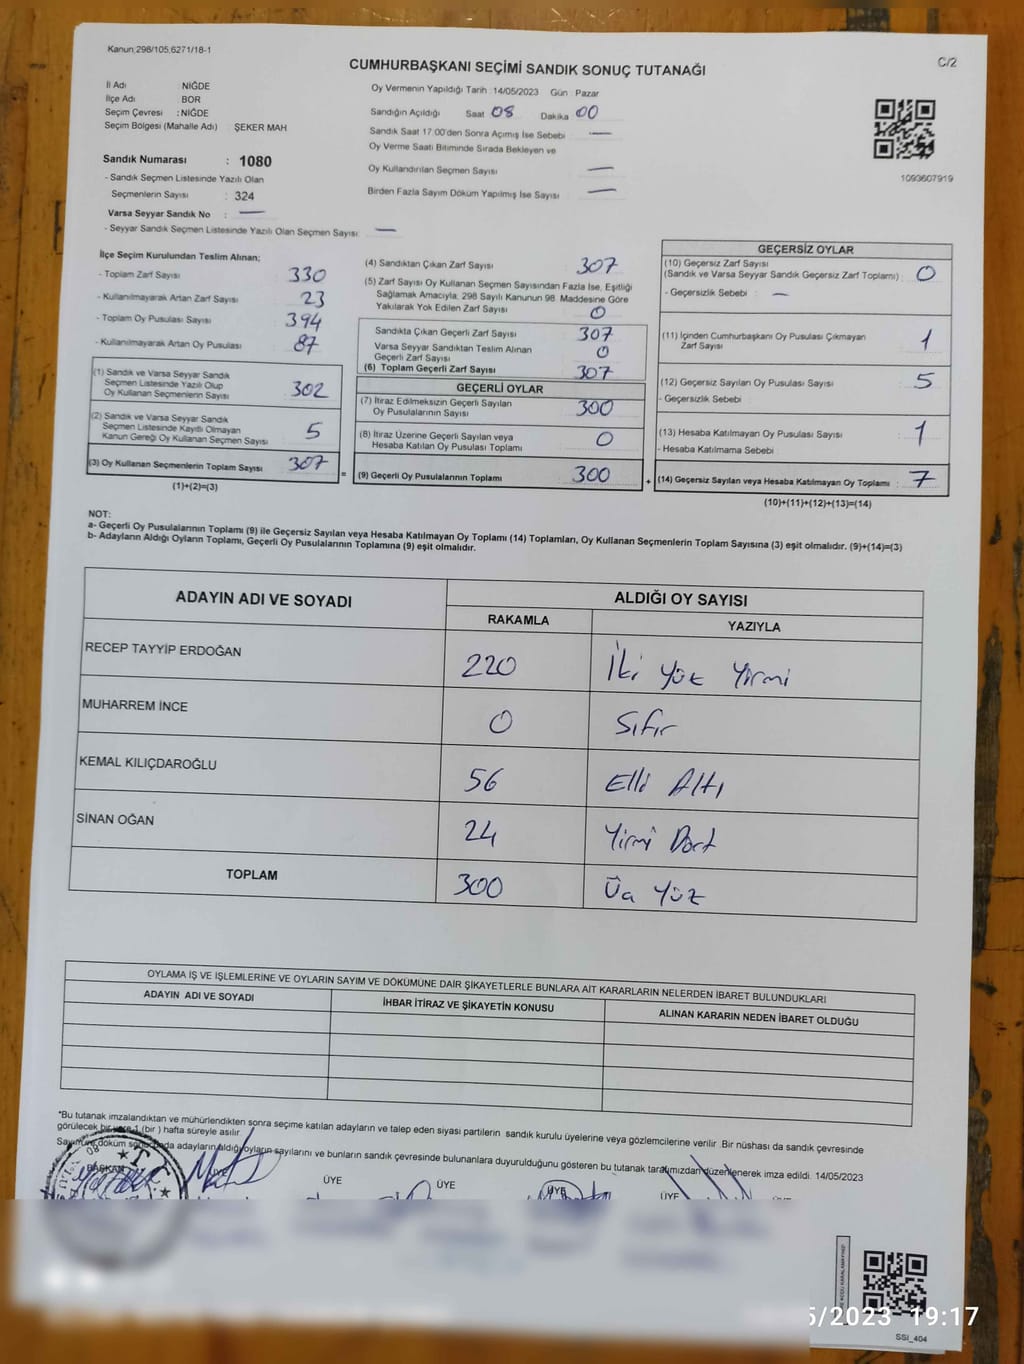 Kanun;298/105,6271/18-1
C/2
CUMHURBAŞKANI SEÇİMİ SANDIK SONUÇ TUTANAĞI
İl Adı NİĞDE
İlçe Adı BOR
Seçim Çevresi : NİĞDE
Seçim Bölgesi (Mahalle Adı) ŞEKER MAH
Sandık Numarası : 1080
- Sandık Seçmen Listesinde Yazılı Olan
Seçmenlerin Sayısı : 324
Varsa Seyyar Sandık No : —
- Seyyar Sandık Seçmen Listesinde Yazılı Olan Seçmen Sayısı: —
Oy Vermenin Yapıldığı Tarih : 14/05/2023 Gün : Pazar
Sandığın Açıldığı Saat 08 Dakika 00
Sandık Saat 17:00'den Sonra Açımış İse Sebebi —
Oy Verme Saati Bitiminde Sırada Bekleyen ve
Oy Kullandırılan Seçmen Sayısı —
Birden Fazla Sayım Döküm Yapılmış İse Sayısı —
1093607919
İlçe Seçim Kurulundan Teslim Alınan;
- Toplam Zarf Sayısı 330
- Kullanılmayarak Artan Zarf Sayısı 23
- Toplam Oy Pusulası Sayısı 394
- Kullanılmayarak Artan Oy Pusulası 87
(1) Sandık ve Varsa Seyyar Sandık
Seçmen Listesinde Yazılı Olup
Oy Kullanan Seçmenlerin Sayısı 302
(2) Sandık ve Varsa Seyyar Sandık
Seçmen Listesinde Kayıtlı Olmayan
Kanun Gereği Oy Kullanan Seçmen Sayısı 5
(3) Oy Kullanan Seçmenlerin Toplam Sayısı 307
(1)+(2)=(3)
=
(4) Sandıktan Çıkan Zarf Sayısı 307
(5) Zarf Sayısı Oy Kullanan Seçmen Sayısından Fazla İse, Eşitliği
Sağlamak Amacıyla, 298 Sayılı Kanunun 98. Maddesine Göre
Yakılarak Yok Edilen Zarf Sayısı 0
Sandıkta Çıkan Geçerli Zarf Sayısı 307
Varsa Seyyar Sandıktan Teslim Alınan
Geçerli Zarf Sayısı 0
(6) Toplam Geçerli Zarf Sayısı 307
GEÇERLİ OYLAR
(7) İtiraz Edilmeksizin Geçerli Sayılan
Oy Pusulalarının Sayısı 300
(8) İtiraz Üzerine Geçerli Sayılan veya
Hesaba Katılan Oy Pusulası Toplamı 0
(9) Geçerli Oy Pusulalarının Toplamı 300
+
GEÇERSİZ OYLAR
(10) Geçersiz Zarf Sayısı
(Sandık ve Varsa Seyyar Sandık Geçersiz Zarf Toplamı) : 0
- Geçersizlik Sebebi : —
(11) İçinden Cumhurbaşkanı Oy Pusulası Çıkmayan
Zarf Sayısı 1
(12) Geçersiz Sayılan Oy Pusulası Sayısı 5
- Geçersizlik Sebebi
(13) Hesaba Katılmayan Oy Pusulası Sayısı 1
- Hesaba Katılmama Sebebi
(14) Geçersiz Sayılan veya Hesaba Katılmayan Oy Toplamı : 7
(10)+(11)+(12)+(13)=(14)
NOT:
a- Geçerli Oy Pusulalarının Toplamı (9) ile Geçersiz Sayılan veya Hesaba Katılmayan Oy Toplamı (14) Toplamları, Oy Kullanan Seçmenlerin Toplam Sayısına (3) eşit olmalıdır. (9)+(14)=(3)
b- Adayların Aldığı Oyların Toplamı, Geçerli Oy Pusulalarının Toplamına (9) eşit olmalıdır.
ADAYIN ADI VE SOYADI ALDIĞI OY SAYISI
RAKAMLA YAZIYLA
RECEP TAYYİP ERDOĞAN 220 İki Yüz Yirmi
MUHARREM İNCE 0 Sıfır
KEMAL KILIÇDAROĞLU 56 Elli Altı
SİNAN OĞAN 24 Yirmi Dört
TOPLAM 300 Üç Yüz
OYLAMA İŞ VE İŞLEMLERİNE VE OYLARIN SAYIM VE DÖKÜMÜNE DAİR ŞİKAYETLERLE BUNLARA AİT KARARLARIN NELERDEN İBARET BULUNDUKLARI
ADAYIN ADI VE SOYADI İHBAR İTİRAZ VE ŞİKAYETİN KONUSU ALINAN KARARIN NEDEN İBARET OLDUĞU
*Bu tutanak imzalandıktan ve mühürlendikten sonra seçime katılan adayların ve talep eden siyasi partilerin sandık kurulu üyelerine veya gözlemcilerine verilir. Bir nüshası da sandık çevresinde
görülecek bir yere 1 (bir) hafta süreyle asılır.
Sayım döküm sonucunda adayların aldığı oyların sayılarını ve bunların sandık çevresinde bulunanlara duyurulduğunu gösteren bu tutanak tarafımızdan düzenlenerek imza edildi. 14/05/2023
BAŞKAN ÜYE ÜYE ÜYE ÜYE ÜYE
5/2023 19:17
SSİ_404